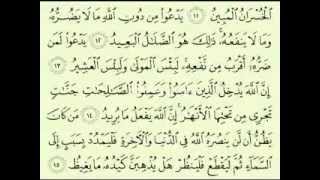 الْخُسْرَانُ الْمُبِينُ ١١ يَدْعُوا مِن دُونِ اللَّهِ مَا لَا يَضُرُّهُ
وَمَا لَا يَنفَعُهُ ذَٰلِكَ هُوَ الضَّلَالُ الْبَعِيدُ ١٢ يَدْعُوا لَمَن
ضَرُّهُ أَقْرَبُ مِن نَّفْعِهِ لَبِئْسَ الْمَوْلَىٰ وَلَبِئْسَ الْعَشِيرُ ١٣
إِنَّ اللَّهَ يُدْخِلُ الَّذِينَ ءَامَنُوا وَعَمِلُوا الصَّالِحَاتِ جَنَّاتٍ
تَجْرِي مِن تَحْتِهَا الْأَنْهَارُ إِنَّ اللَّهَ يَفْعَلُ مَا يُرِيدُ ١٤ مَن كَانَ
يَظُنُّ أَن لَّن يَنصُرَهُ اللَّهُ فِي الدُّنْيَا وَالْآخِرَةِ فَلْيَمْدُدْ بِسَبَبٍ إِلَى
السَّمَاءِ ثُمَّ لْيَقْطَعْ فَلْيَنظُرْ هَلْ يُذْهِبَنَّ كَيْدُهُ مَا يَغِيظُ ١٥